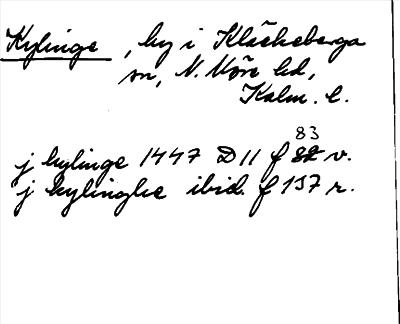 Kylinge, by i Kläckeberga
sn, N. Möre hd,
Kalm. l.
83
j kylinge 1447 D 11 f 82 v.
j kylinghe ibid. f 157 r.